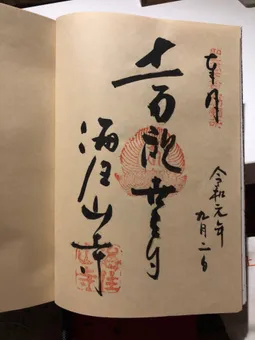 奉拝
令和元年
九月二日
十一面観世音
海住山寺